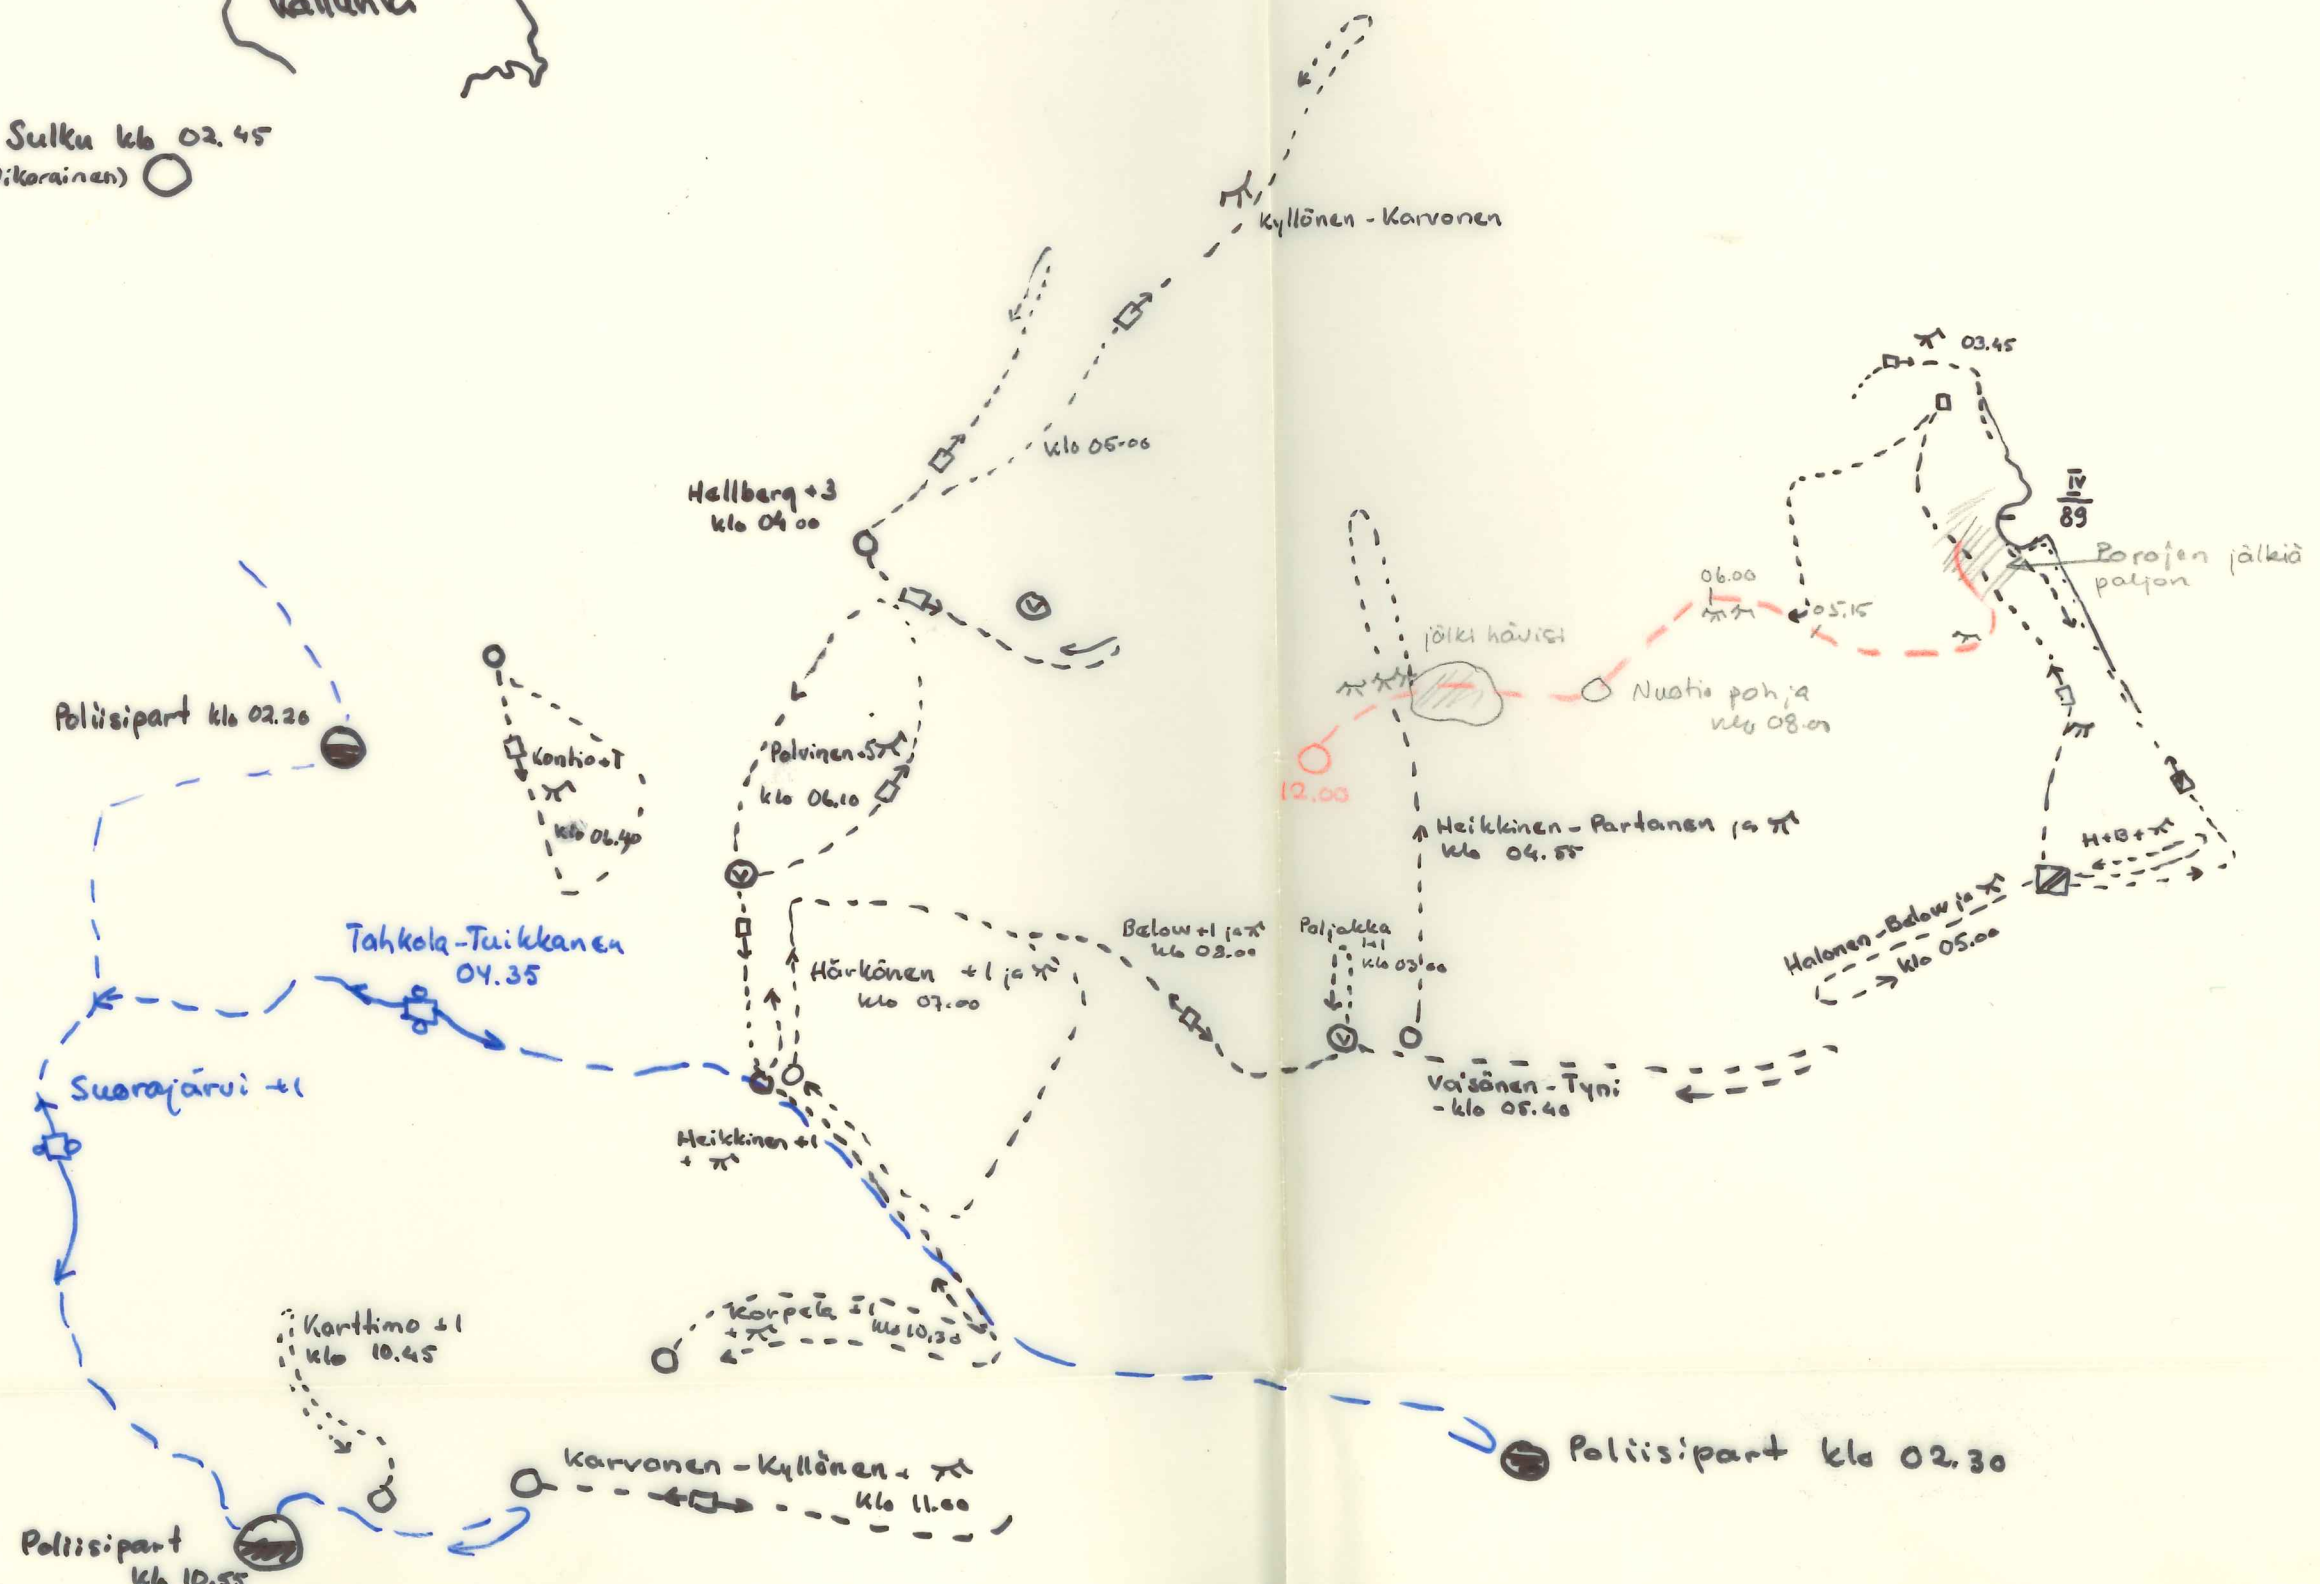 Kallunki
Sulku klo 02.45
Kyllönen - Karvonen
03.45
klo 05.00
Hellberg +3
klo 04.00
IV
89
Porojen jälkiä
paljon
06.00
05.15
jälki hävisi
Nuotio pohja
klo 08.00
Poliisipart klo 02.20
Kontio+1
klo 06.40
Polvinen+5
klo 06.10
12.00
Heikkinen - Partanen ja
klo 04.55
H+B+
Halonen-Below ja
klo 05.00
Tahkola-Tuikkanen
04.35
Härkönen +1 ja
klo 07.00
Below+1 ja
klo 08.00
Poljakka
+1
klo 03.00
Väisönen - Tyni
- klo 05.40
Suorajärvi +1
Heikkinen +1
+
Korpela +1
+ klo 10.30
Karttimo +1
klo 10.45
Karvonen - Kyllönen +
klo 11.00
Poliisipart klo 02.30
Poliisipart
klo 10.55